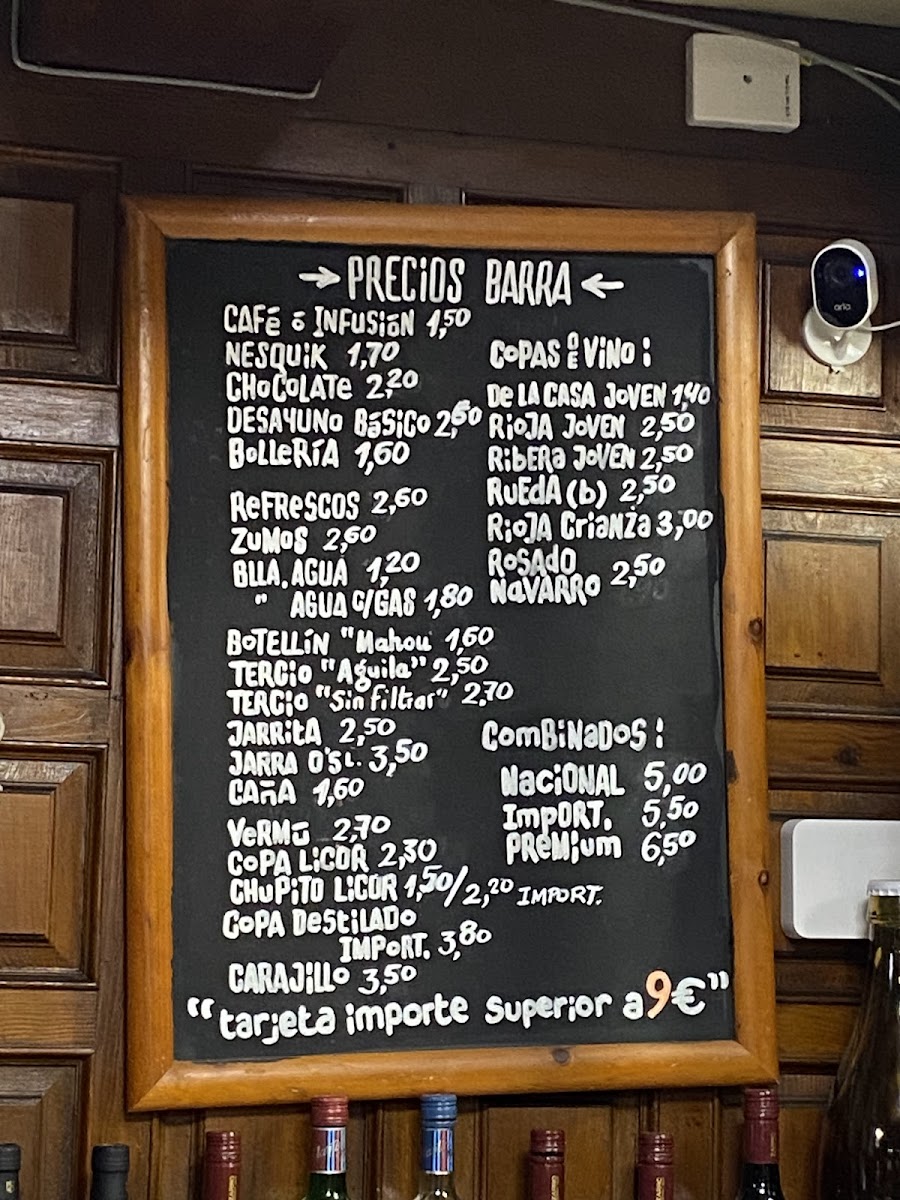 → PRECIOS BARRA ←
CAFé ó INFUSIóN 1,50
NESQUIK 1,70
CHOCOLATE 2,20
DESAYUNO BáSICO 2,60
BOLLERÍA 1,60
REFRESCOS 2,60
ZUMOS 2,60
BLLA. AGUA 1,20
" AGUA C/GAS 1,80
BOTELLÍN "Mahou 1,60
TERCIO "Aguila" 2,50
TERCIO "Sin filtrar" 2,70
JARRITA 2,50
JARRA 0'5L. 3,50
CAÑA 1,60
VERMÚ 2,70
COPA LICOR 2,30
CHUPITO LICOR 1,50/2,20 IMPORT.
COPA DESTILADO
IMPORT. 3,80
CARAJILLO 3,50
COPAS DE VINO :
DE LA CASA JOVEN 1,40
RIOJA JOVEN 2,50
RIBERA JOVEN 2,50
RUEDA (b) 2,50
RIOJA CRIANZA 3,00
ROSADO
NAVARRO 2,50
COMBINADOS :
NACIONAL 5,00
IMPORT. 5,50
PREMIUM 6,50
"tarjeta importe superior a 9€"
arlo